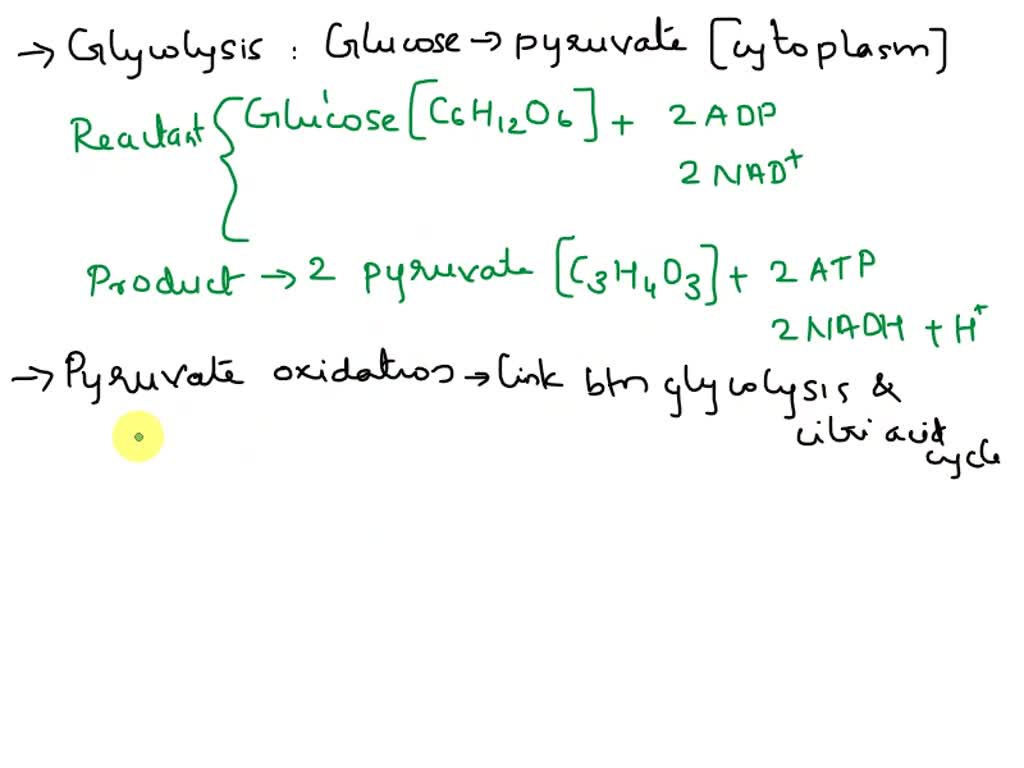 → Glycolysis : Glucose → pyruvate [cytoplasm]
Reactant { Glucose [C6H12O6] + 2 ADP
2 NAD+
Product → 2 pyruvate [C3H4O3] + 2 ATP
2 NADH + H+
→ Pyruvate oxidation → link btn glycolysis &
citri acid
cycle